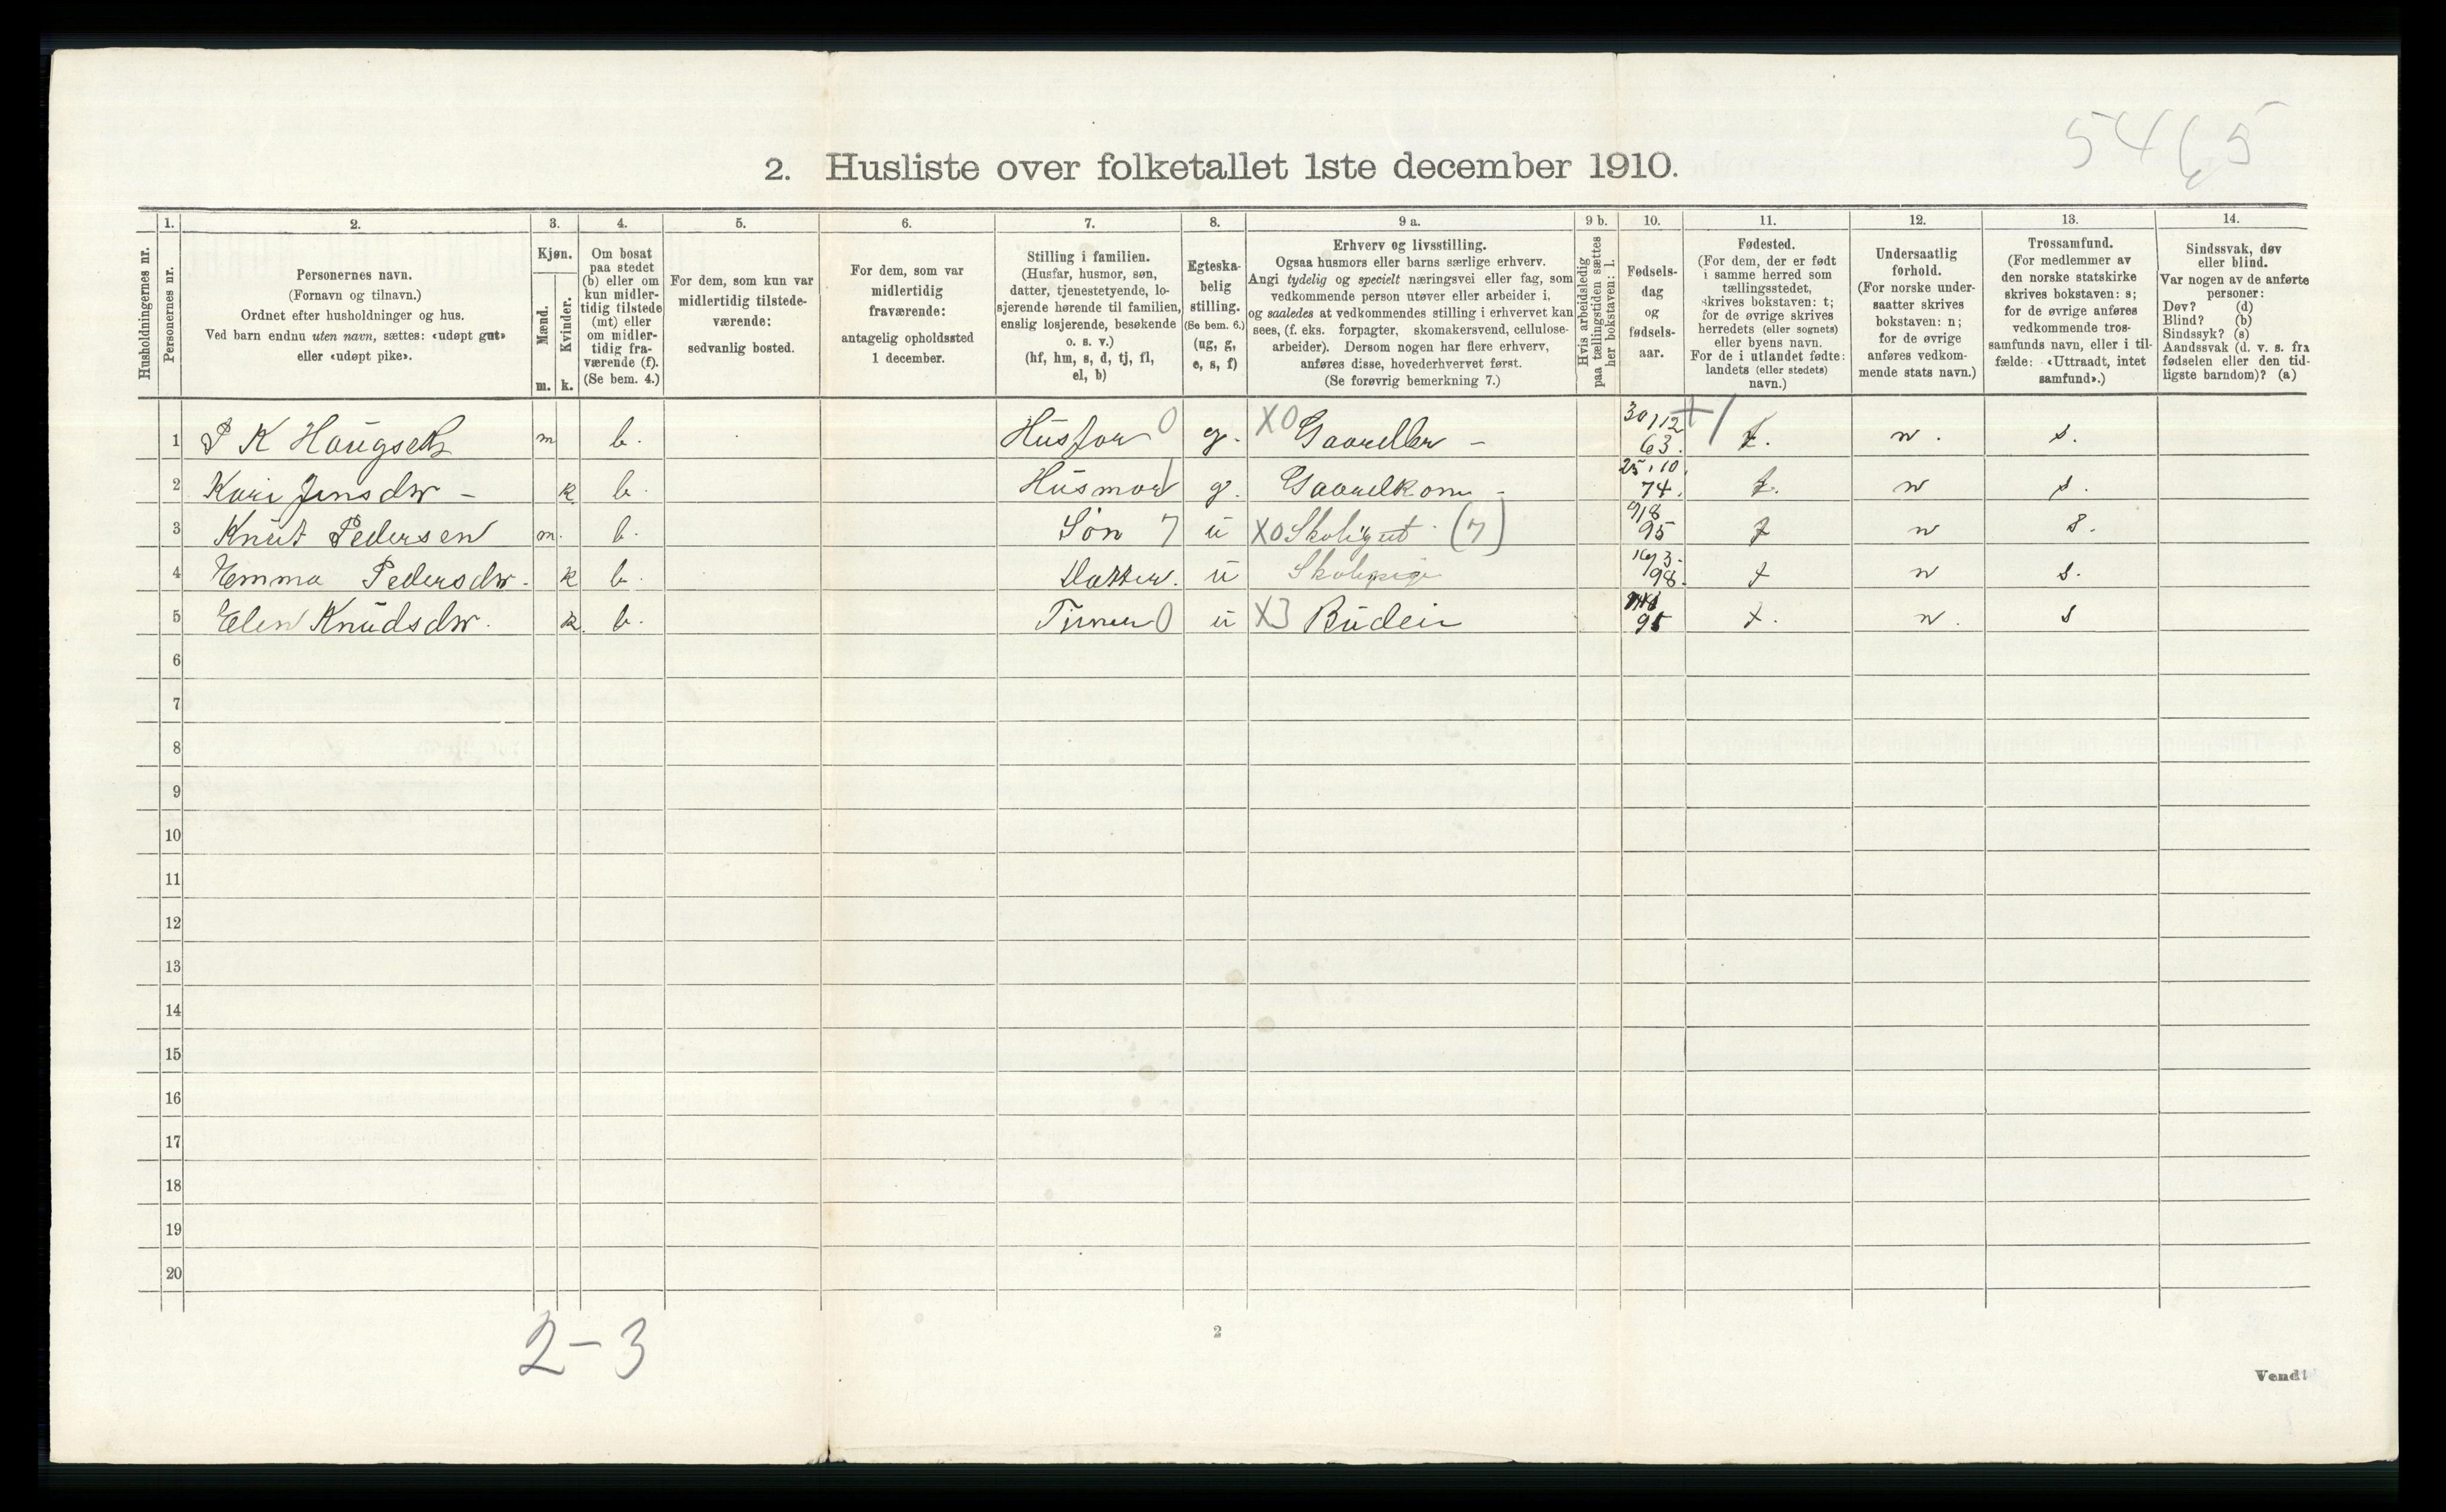 5465
2. Husliste over folketallet 1ste december 1910.
Husholdningernes nr.
1.
Personernes nr.
2.
Personernes navn.
(Fornavn og tilnavn.)
Ordnet efter husholdninger og hus.
Ved barn endnu uten navn, sættes: «udøpt gut»
eller «udøpt pike».
3.
Kjøn.
Mænd.
Kvinder.
m. k.
4.
Om bosat
paa stedet
(b) eller om
kun midler-
tidig tilstede
(mt) eller
om midler-
tidig fra-
værende (f).
(Se bem. 4.)
5.
For dem, som kun var
midlertidig tilstede-
værende:
sedvanlig bosted.
6.
For dem, som var
midlertidig
fraværende:
antagelig opholdssted
1 december.
7.
Stilling i familien.
(Husfar, husmor, søn,
datter, tjenestetyende, lo-
sjerende hørende til familien,
enslig losjerende, besøkende
o. s. v.)
(hf, hm, s, d, tj, fl,
el, b)
8.
Egteska-
belig
stilling.
(Se bem. 6.)
(ug, g,
e, s, f)
9 a.
Erhverv og livsstilling.
Ogsaa husmors eller barns særlige erhverv.
Angi tydelig og specielt næringsvei eller fag, som
vedkommende person utøver eller arbeider i,
og saaledes at vedkommendes stilling i erhvervet kan
sees, (f. eks. forpagter, skomakersvend, cellulose-
arbeider). Dersom nogen har flere erhverv,
anføres disse, hovederhvervet først.
(Se forøvrig bemerkning 7.)
9 b.
Hvis arbeidsledig
paa tællingstiden sættes
her bokstaven: l.
10.
Fødsels-
dag
og
fødsels-
aar.
11.
Fødested.
(For dem, der er født
i samme herred som
tællingsstedet,
skrives bokstaven: t;
for de øvrige skrives
herredets (eller sognets)
eller byens navn.
For de i utlandet fødte:
landets (eller stedets)
navn.)
12.
Undersaatlig
forhold.
(For norske under-
saatter skrives
bokstaven: n;
for de øvrige
anføres vedkom-
mende stats navn.)
13.
Trossamfund.
(For medlemmer av
den norske statskirke
skrives bokstaven: s;
for de øvrige anføres
vedkommende tros-
samfunds navn, eller i til-
fælde: «Uttraadt, intet
samfund».)
14.
Sindssvak, døv
eller blind.
Var nogen av de anførte
personer:
Døv? (d)
Blind? (b)
Sindssyk? (s)
Aandssvak (d. v. s. fra
fødselen eller den tid-
ligste barndom)? (a)
1 P K Haugseth m b. Husfar 0 g. X0 30/12 63. t. n. s.
2 Kari Jensdtr - k b. Husmor g. 25/10 74. t. n s.
3 Knut Pedersen m. b. Søn 7 u X0 Skolegut (7) 9/8 95 t n s.
4 Emma Pedersdtr. k b. Datter. u Skolepige 98. t n s.
5 Elen Knudsdtr. k. b. 0 u X3 Budeie 95 t. n. s
6
7
8
9
10
11
12
13
14
15
16
17
18
19
20
2-3
2
Vend!